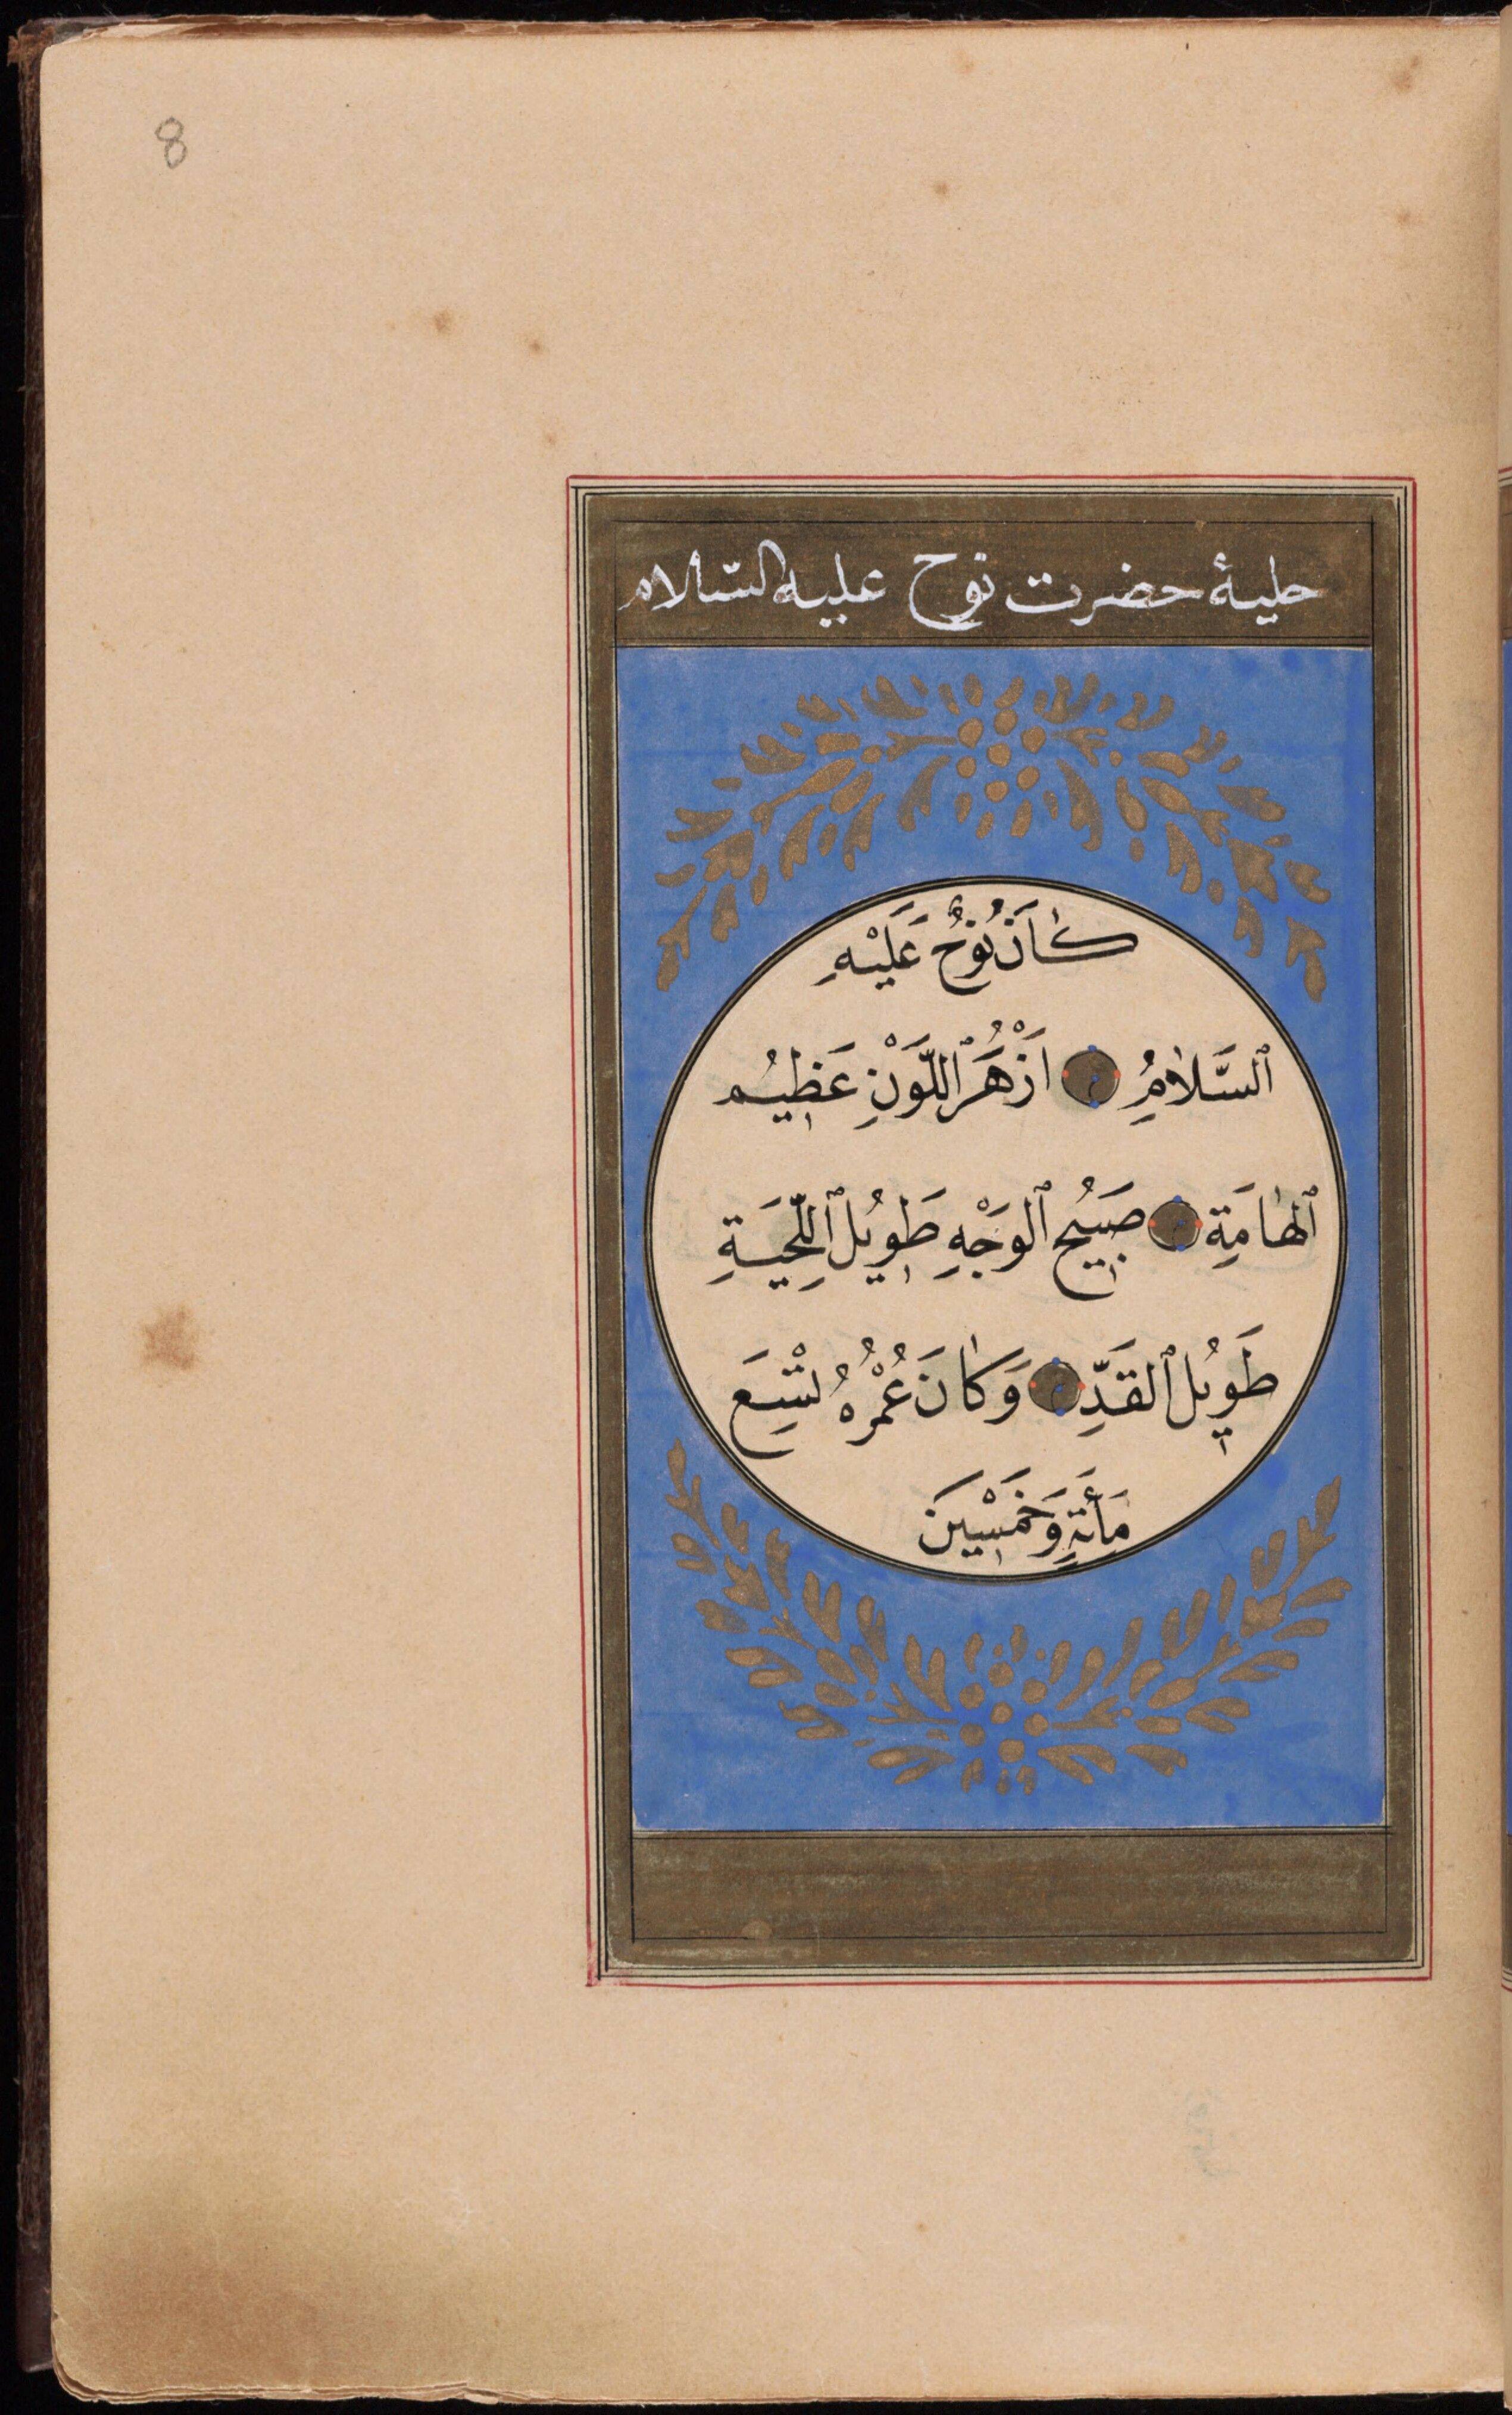 8
حلیهٔ حضرت نوح علیه السّلام
كَانَ نُوحٌ عَلَيْهِ
ٱلسَّلَامُ اَزْهَرُ ٱللَّوْنِ عَظِيمُ
ٱلهَامَةِ صَبِيحُ ٱلوَجْهِ طَوِيلُ ٱللِّحْيَةِ
طَوِيلُ ٱلقَدِّ وَكَانَ عُمْرُهُ تِسْعَ
مَأَةٍ وَخَمْسِينَ